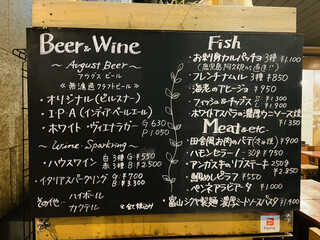 Beer & Wine
~ August Beer ~
アウグス ビール
≪無濾過クラフトビール≫
・オリジナル(ピルスナー)
・IPA(インディアペールエール)
・ホワイト・ヴィエナラガー
G 630
P 1.050
~ Wine・Sparkling ~
・ハウスワイン
白 3種 G ¥550
赤 3種 B ¥2.500
・イタリアスパークリング
G: ¥700
B: ¥3.300
その他…
ハイボール
カクテル
※全て税込み
Fish
・お刺身カルパッチョ 3種 ¥1,100
・フレンチナムル 3種 ¥850
・海老のアヒージョ ¥950
・フィッシュ&チップス
S
L ¥1.900
・ホワイトアスパラの濃厚ウニソース焼
¥1350
Meat & etc.
・田舎風お肉のパテ ¥900
・ハモンセラーノ ¥750
・アンガス牛のリブステーキ 250g
¥2.850
・鯛めしピラフ ¥550
・ペンネアラビアータ ¥1.000
・富山シロエビ 濃厚ミートソースパスタ ¥1,400
PayPay